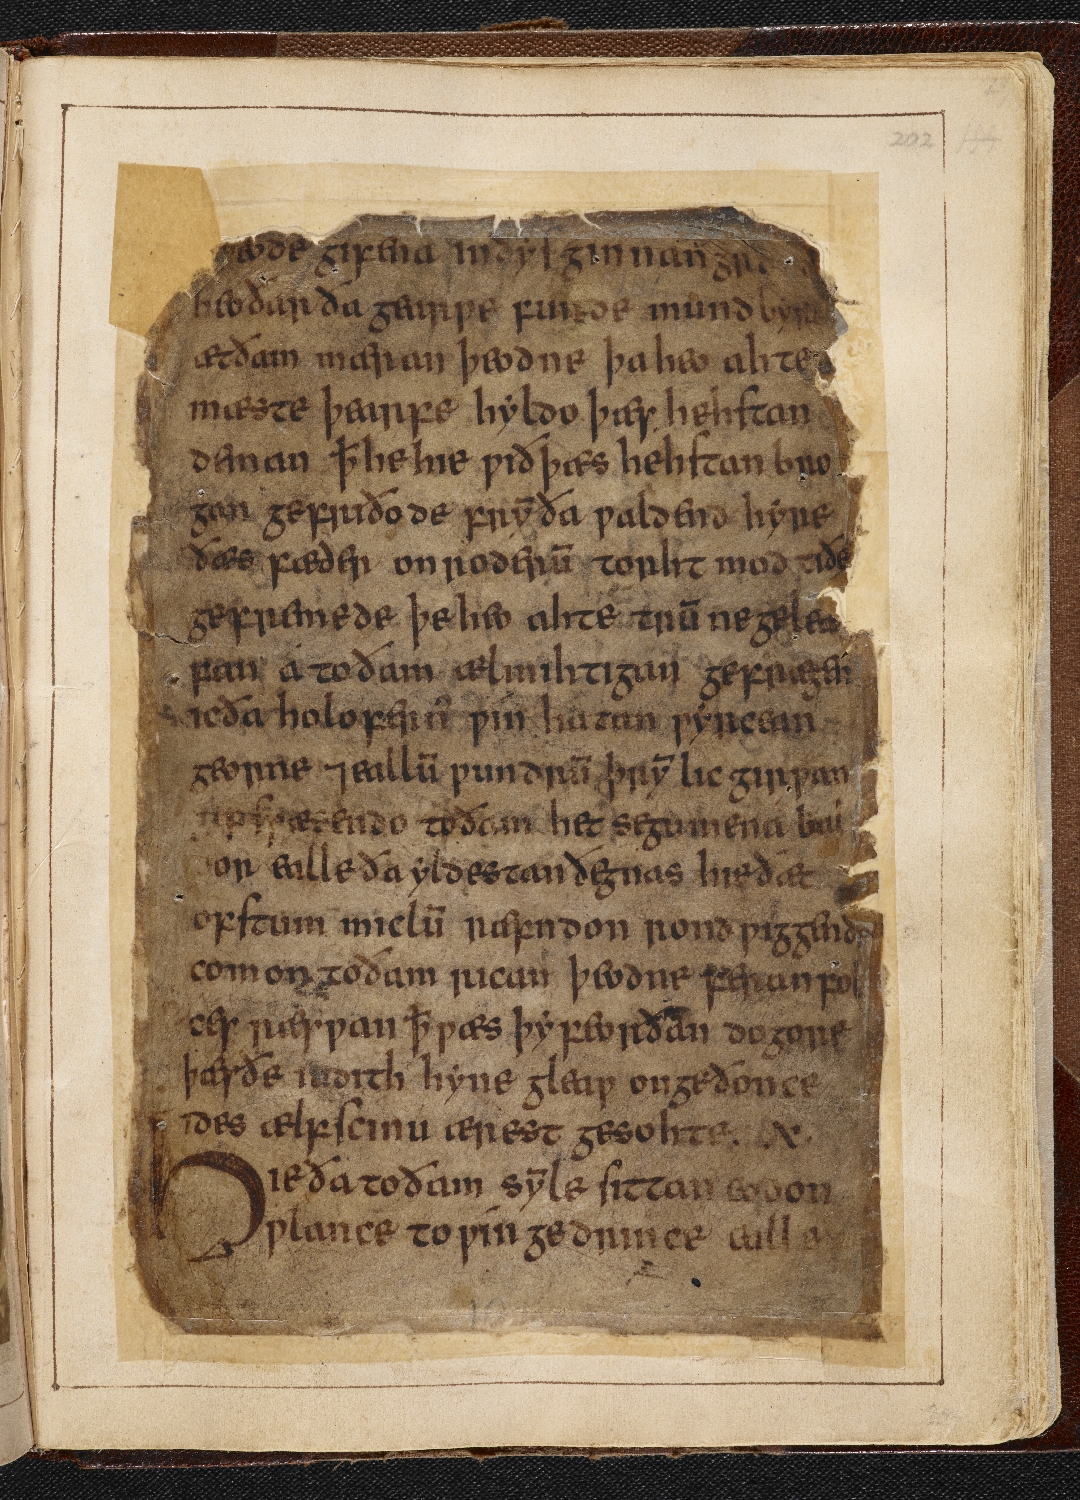 202
tweode gifena in ðys ginnan grunde
heo ðar ða gearwe funde mundbyrd
æt ðam mæran þeodne þa heo ahte
mæste þearfe hyldo þæs hehstan
deman ꝥ he hie wið þæs hehstan bro
gan gefriðode frȳða waldend hyre
ðæs fæder on roderū torht mod tiðe
gefremede þe heo ahte trūne gelea
fan á to ðam ælmihtigan gefrægen
ic ða holofernus win hatan wyrcean
georne ⁊ eallū wundrū þrȳlic girwan
up swæsendo to ðam het se gumena bal
dor ealle ða yldestan ðegnas hie ðæt
ofstum miclū ræfndon rond wiggende
comon to ðam rican þeodne feran fol
ces ræswan ꝥ wæs þȳ feorðan dogore
þæs ðe iudith hyne gleaw on geðonce
ides ælfscinu ærest gesohte. X.
Hie ða to ðam sȳle sittan eodon
wlance to win gedrince ealle